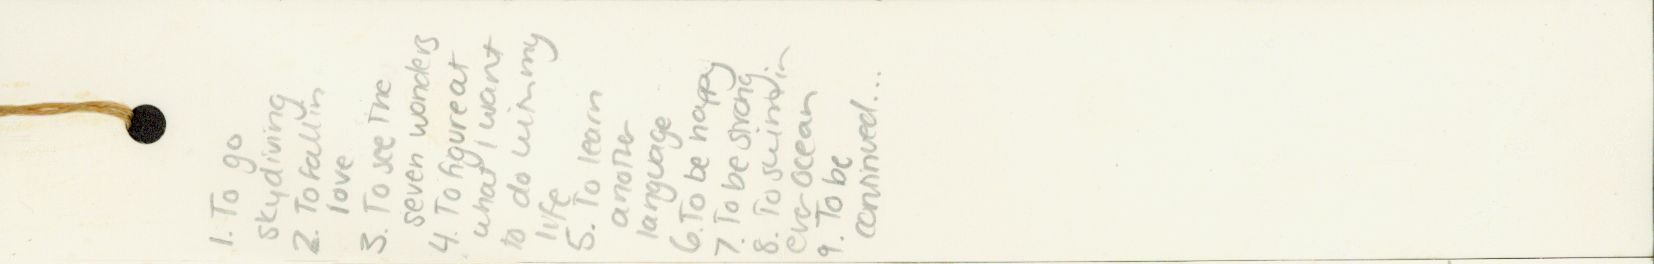 1. To go
skydiving
2. To fall in
love
3. To see the
seven wonders
4. To figure at
what I want
to do with my
life
5. To learn
another
language
6. To be happy
7. To be strong.
8. To swim in
ever ocean
9. To be
continued...